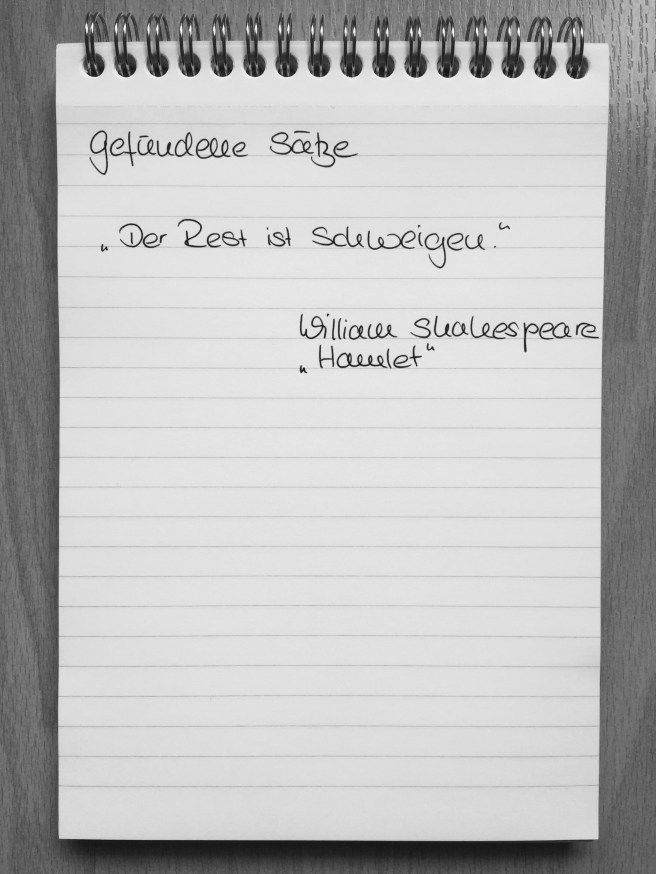 Gefundene Sätze
„Der Rest ist Schweigen.“
William Shakespeare
„Hamlet“